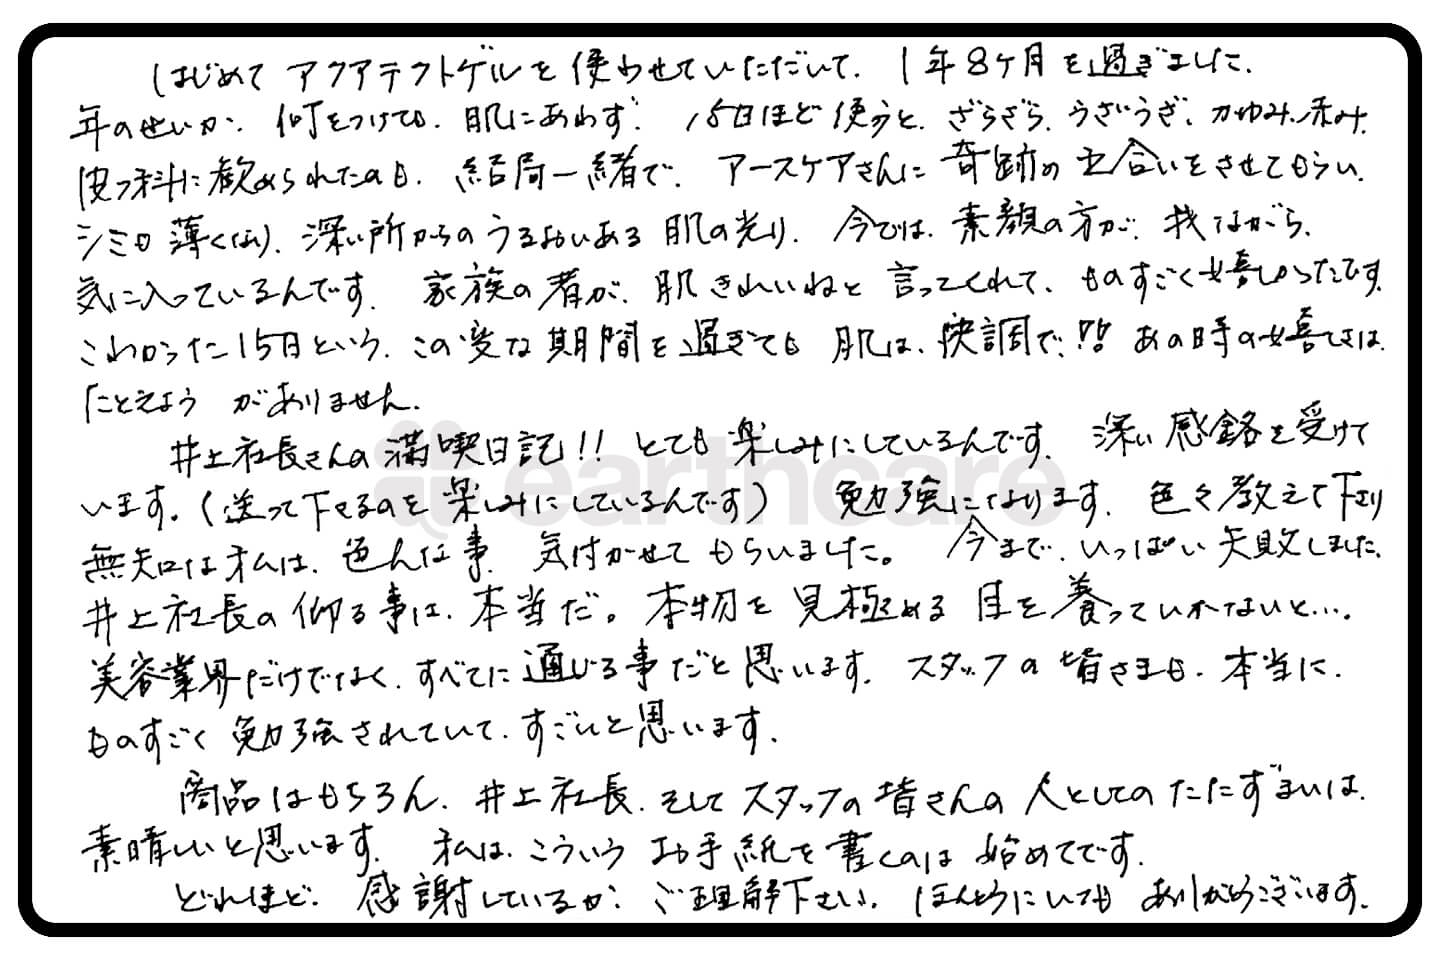 はじめて アクアテクトゲルを 使わせていただいて、1年8ケ月を過ぎました、
年のせいか、何をつけても、肌にあわず、15日ほど使うと、ざらざら、うざうざ、かゆみ、赤み、
皮フ科に 勧められたのも、結局一緒で、アースケアさんに 奇跡の出合いをさせてもらい、
シミも 薄くなり、深い所からの うるおいある 肌の光り、今では、素顔の方が、我ながら、
気に入っているんです、家族の者が、肌きれいねと 言ってくれて、ものすごく嬉しかったです、
こわかった15日という、この変な期間を過ぎても 肌は、快調で、!! あの時の嬉しさは、
たとえよう がありません、
井上社長さんの満喫日記!! とても 楽しみにしているんです、深い 感銘を受けて
います。(送って下さるのを 楽しみにしているんです) 勉強になります、色々教えて下さり
無知な私は、色んな事、気付かせて もらいました。今まで、いっぱい 失敗しました、
井上社長の 仰る事は、本当だ。本物を 見極める 目を養っていかないと…。
美容業界だけでなく、すべてに 通じる事だと 思います、スタッフの 皆さまも、本当に、
ものすごく 勉強されていて、すごいと思います、
商品はもちろん、井上社長、そしてスタッフの皆さんの 人としてのたたずまいは、
素晴しいと思います、私は、こういう お手紙を書くのは 始めてです、
どれほど、感謝しているか、ご理解下さい、ほんとうにいつも ありがとうございます、
earthcare